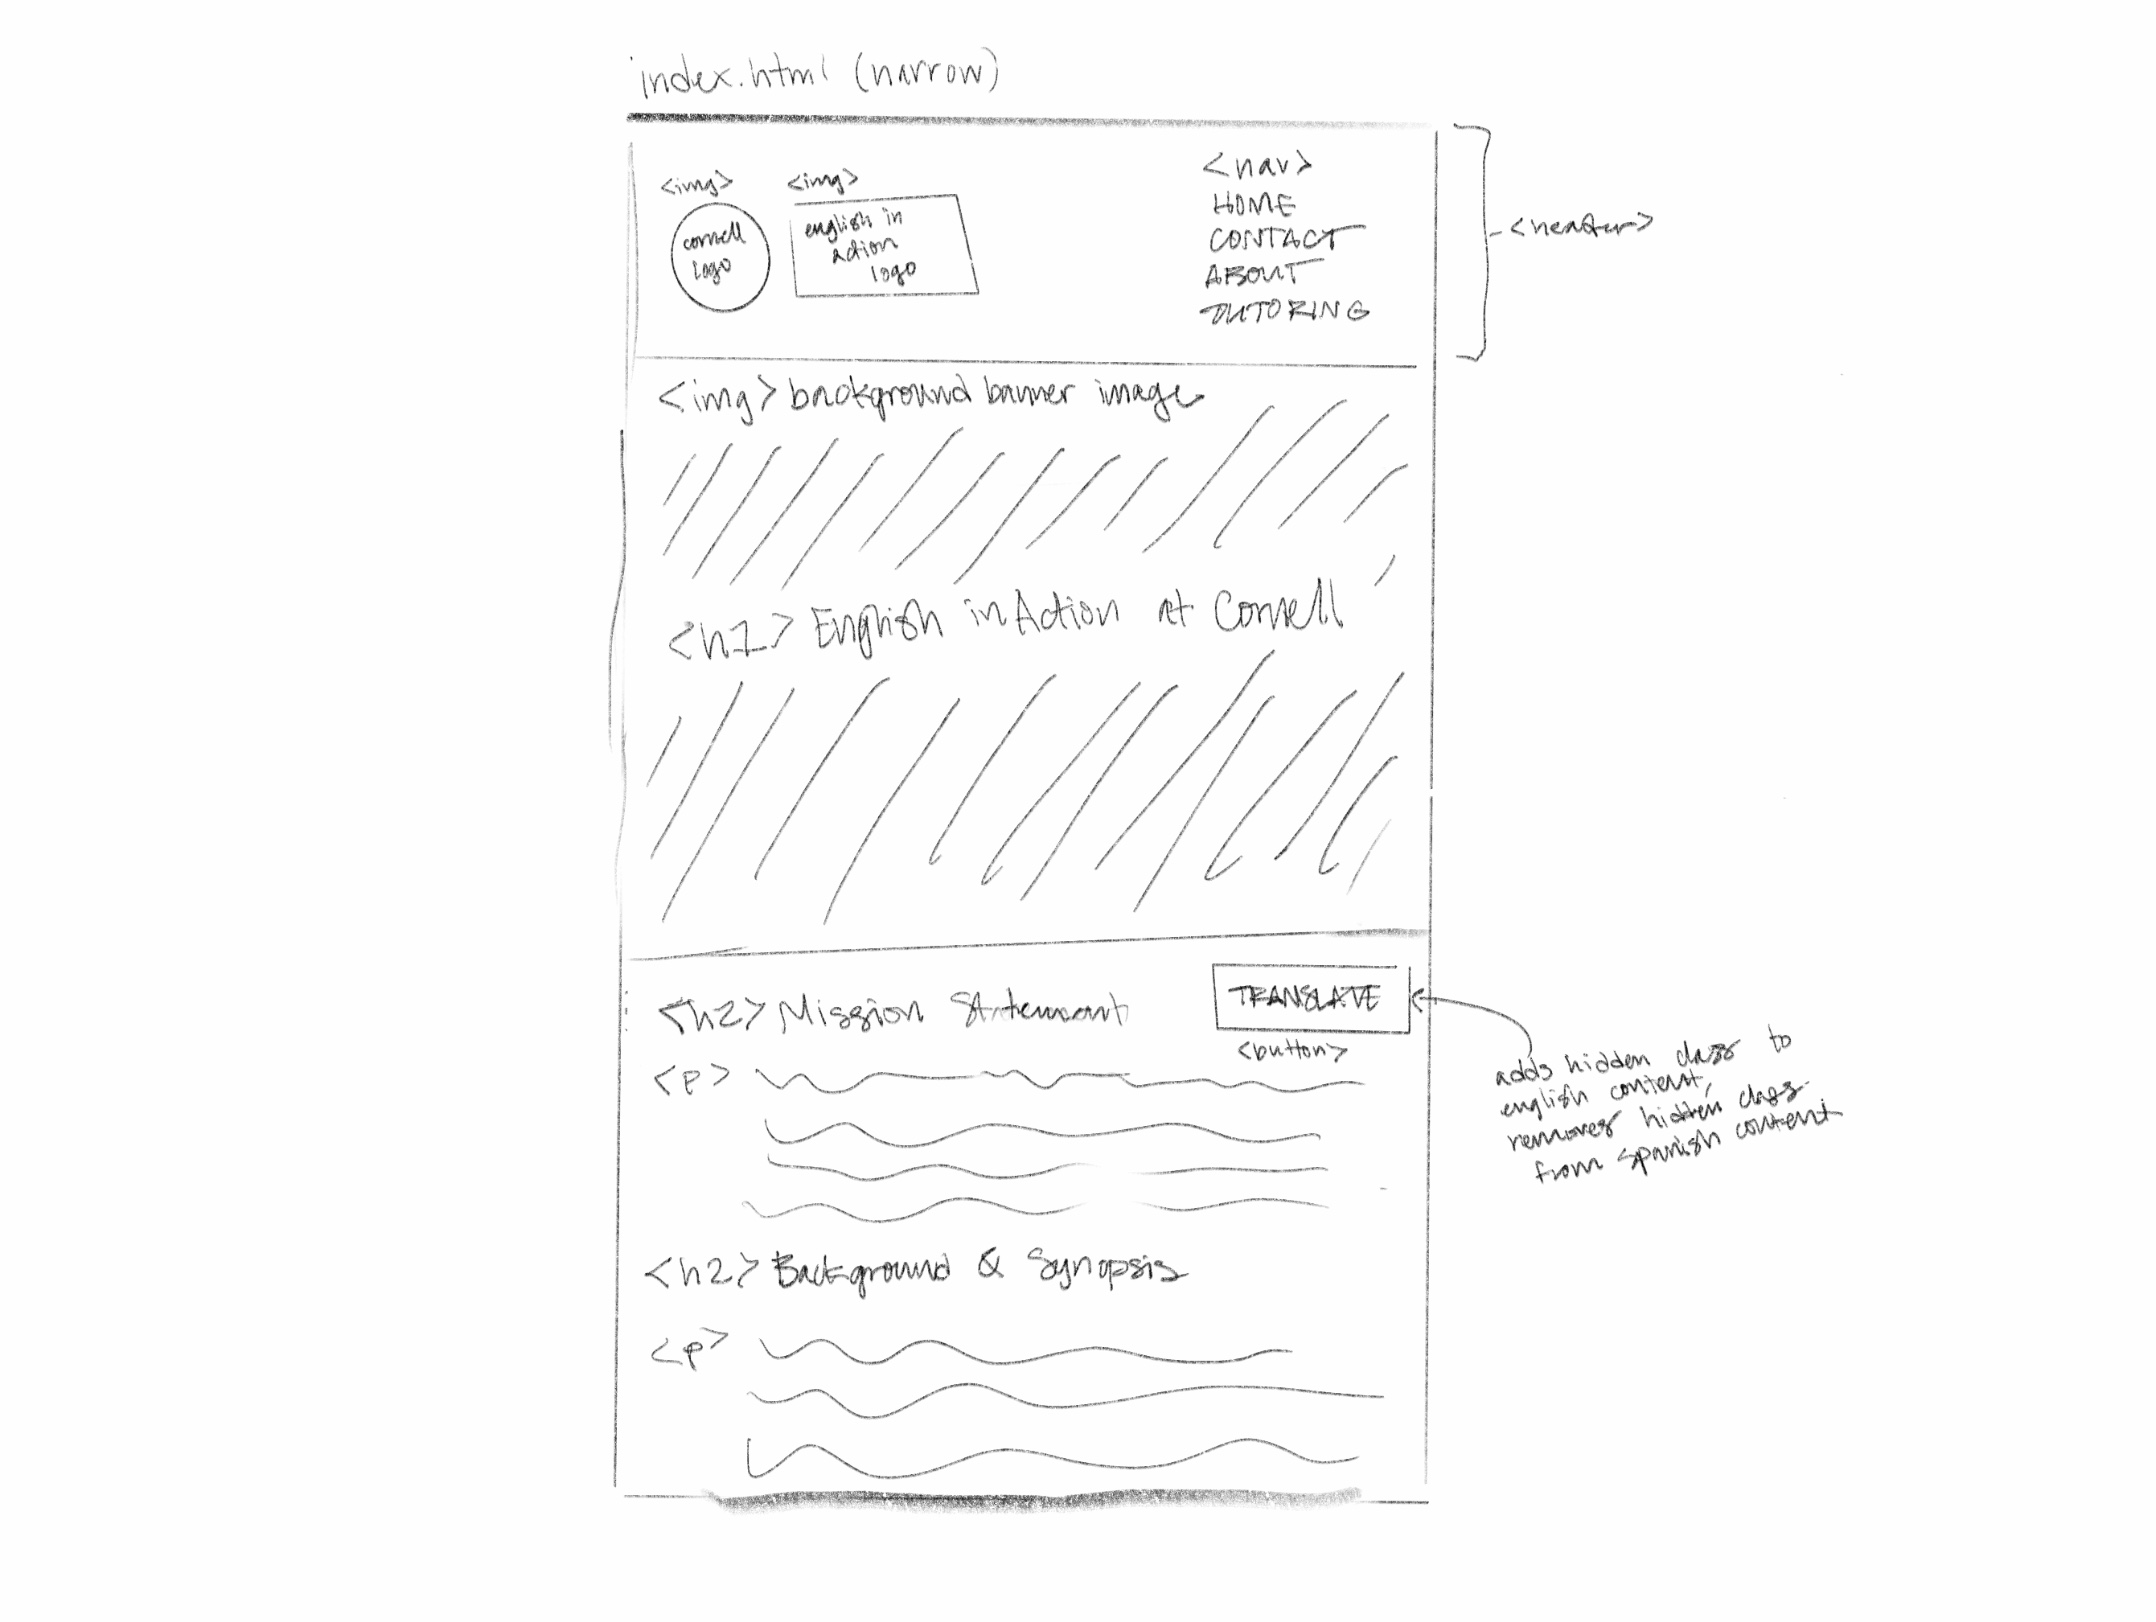 index.html (narrow)
<img>
<img>
cornell
logo
english in
action
logo
<nav>
HOME
CONTACT
ABOUT
TUTORING
<header>
<img> background banner image
<h1> English in Action at Cornell
<h2> Mission Statement
TRANSLATE
<button>
<p>
adds hidden class to
english content,
removes hidden class
from spanish content
<h2> Background & Synopsis
<p>